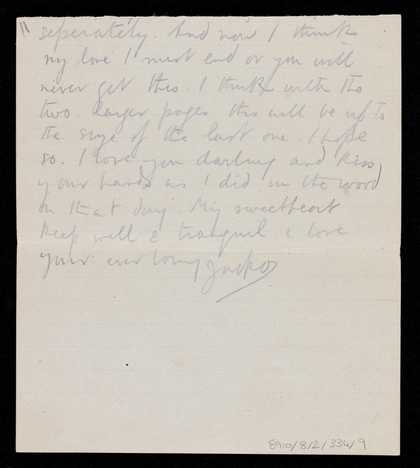 " seperately. And now I think
my love I must end or you will
never get this. I think with the
two larger pages this will be up to
the size of the last one. I hope
so. I love you darling and kiss
your hands as I did in the wood
on that day. My sweetheart
Keep well & tranquil & love
your ever loving Jacko
8910/8/2/334/9